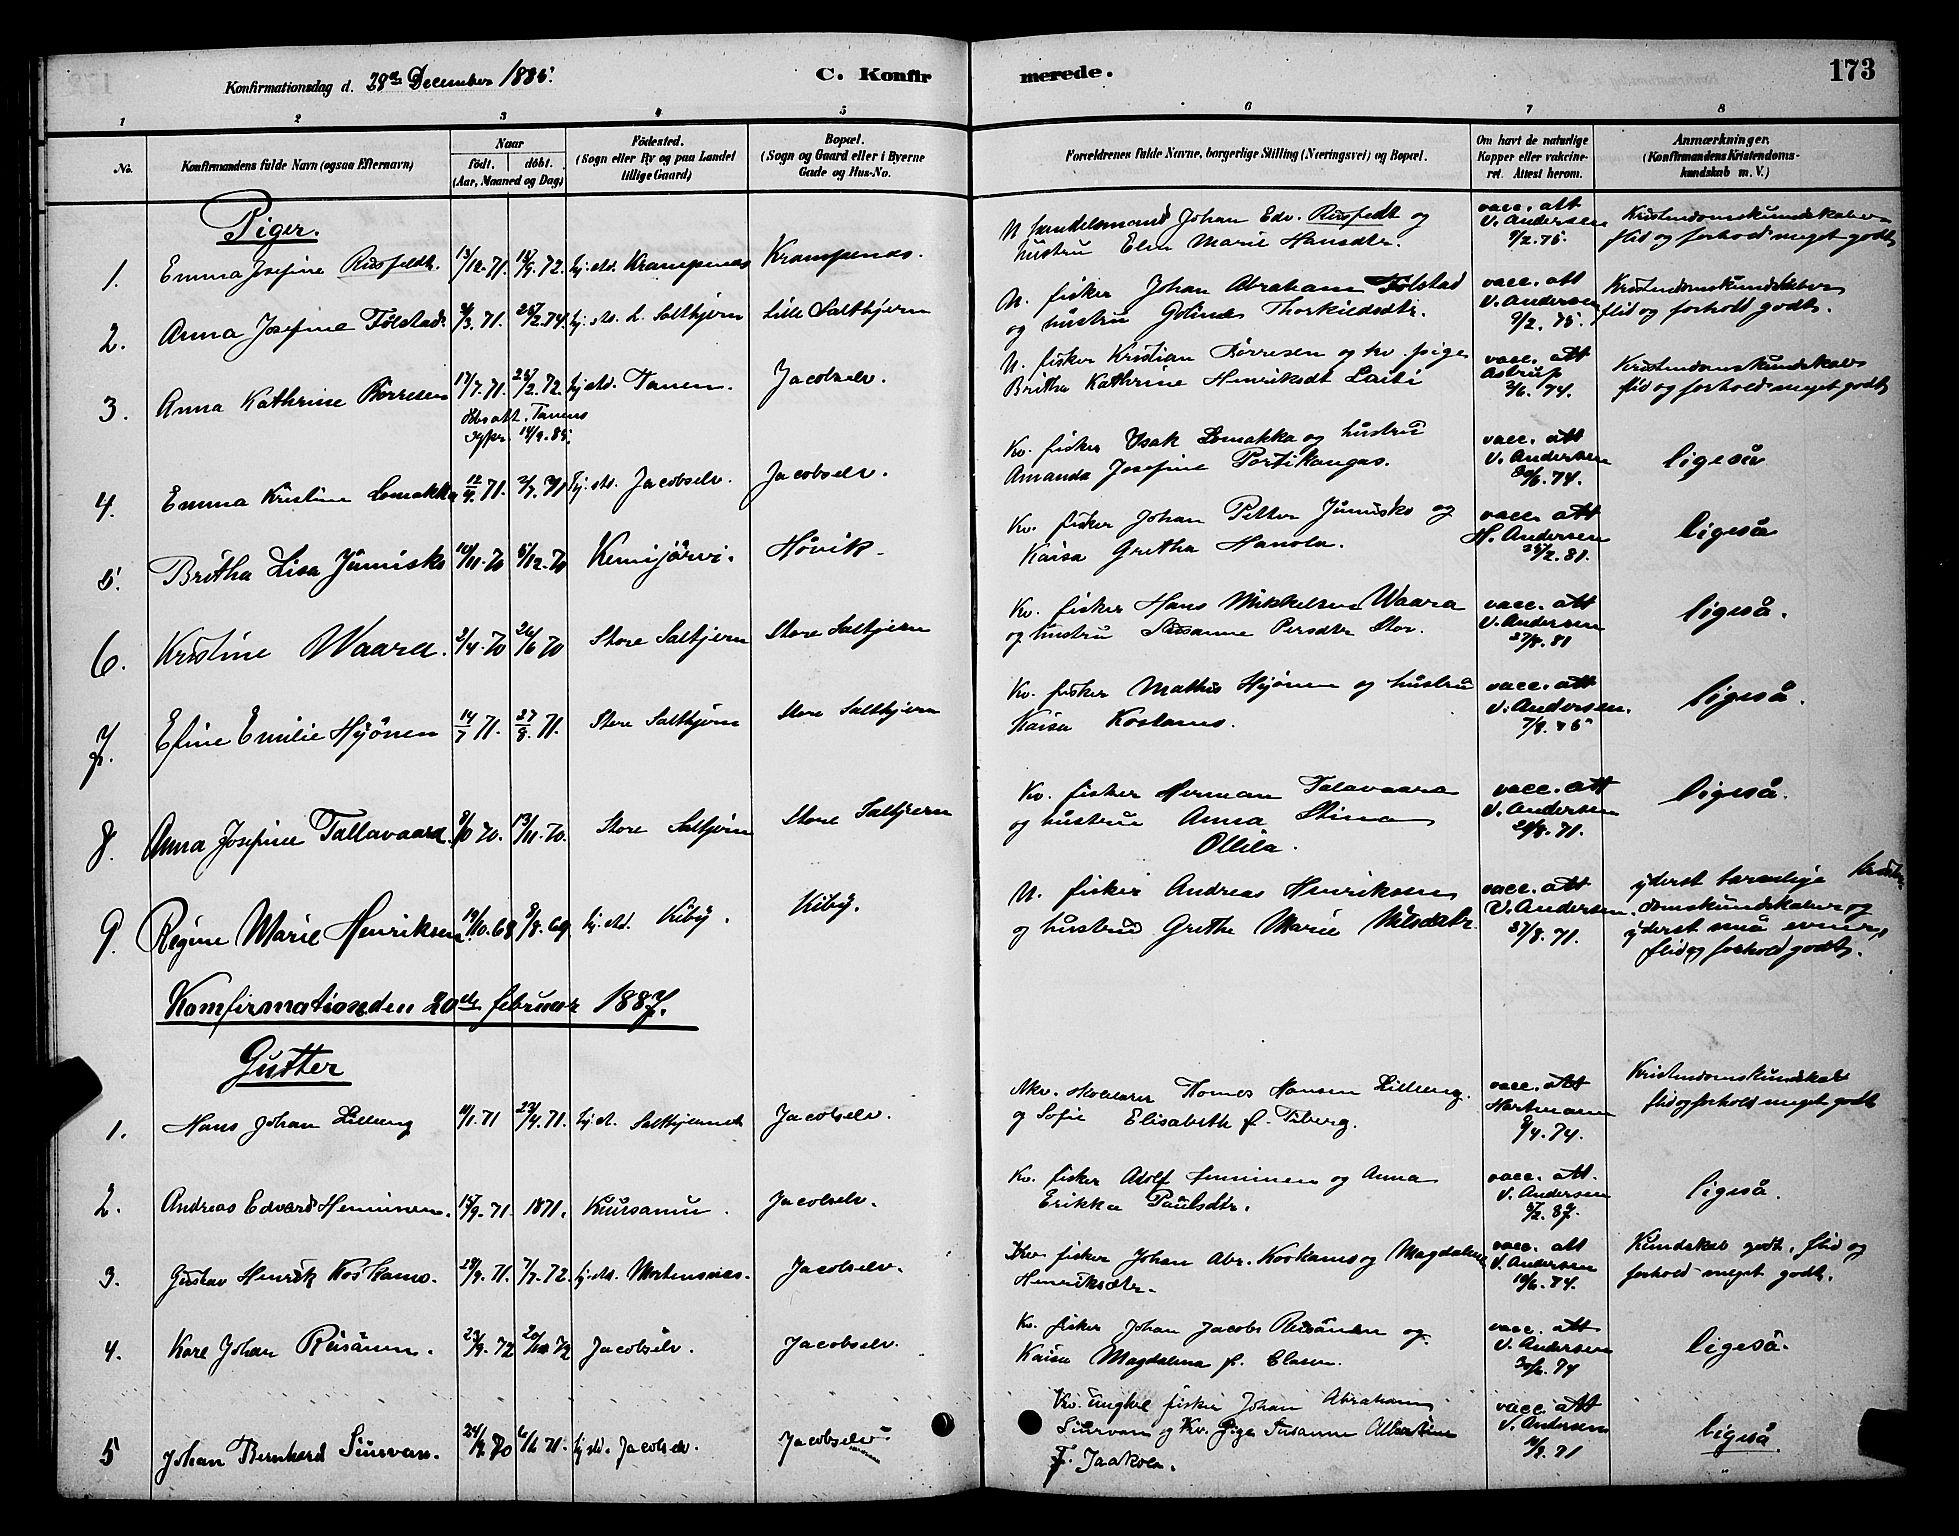 Konfirmationsdag d. 28de December 1885.
C. Konfirmerede.
173
1 2 3 4 5 6 7 8
No.
Konfirmandens fulde Navn (ogsaa Efternavn)
Naar
födt. döbt.
(Aar, Maaned og Dag)
Födested.
(Sogn eller By og paa Landet
tillige Gaard)
Bopæl.
(Sogn og Gaard eller i Byerne
Gade og Hus-No.
Forældrenes fulde Navne, borgerlige Stilling (Næringsvei) og Bopæl.
Om havt de naturlige
Kopper eller vakcine-
ret. Attest herom.
Anmærkninger.
(Konfirmandens Kristendoms-
kundskab m. V.)
Piger.
1. Emma Josefine Rusfeldt. /12.71. /9.72. hj. db. Krampenæs Krampenæs.
N. handelsmand Johan Edv. Rusfedt og
hustru Elen Marie Hansdtr.
vacc. att
V. Andersen
9/2.75.
Kristendomskundskaber
flid og forhold meget godt
2. Anna Josefine Tölstad. /3.71. /2.74. hj. db. L. Saltkjern Lille Saltkjern
N. fisker Johan Abraham Tolstad
og hustru Thorkildsdtr.
vacc. att
V. Andersen
9/2.75.
Kristendomskundskaber
flid og forhold godt.
3. Anna Kathrine Börresen 17/7.71. /2.72. hj. db. Tanen. Jacobselv.
Dbs att. Tanens
sgpr. 14/9.85.
N. fisker Kristian Börresen og kv. pige
Britha Kathrine Henriksdt Laiti
vacc. att
Astrup
/6.74.
Kristendomskundskab
flid og forhold meget godt
4. Emma Kristine Lomakka 12/4.71. 2/7.71 hj. db. Jacobselv. Jacobselv.
Kv. fisker Isak Lomakka og hustru
Amanda Josefine Portikangas.
vacc. att
V. Andersen
30/6.74.
ligeså
5. Britha Lisa Jumisko 10/11.70 5/12.70 Kemijärvi. Høvik.
Kv. fisker Johan Petter Jumisko og
Kaisa Gretha Hanola.
vacc. att
H. Andersen
/2.81.
ligeså
6. Kristine Waara. 2/4.70 26/6 70 Store Saltkjern Store Saltkjern
Kv. fisker Hans Mikkelsen Waara
og hustru Susanne Persdtr Stor.
vacc. att
V. Andersen
27/8.81
ligeså.
7. Efine Emilie Hyönen 14/7 71. 27/8.71. Store Saltkjern Store Saltkjern
Kv. fisker Mathis Hyönen og hustru
Kaisa Koskamo.
vacc. att
V. Andersen.
7/8.75
ligeså.
8. Anna Josefine Tallavaara. /10 70. 13/11.70. Store Saltkjern Store Saltkjern
Kv. fisker Herman Talavaara
og hustru Anna Stina
Ollila.
vacc. att
V. Andersen
/8.71.
ligeså.
9. Regine Marie Henriksen 19/10.68 8/8.69 hj. db. Kiby. Kiby.
N. fisker Andreas Henriksen
og hustru Grethe Marie Nilsdatr.
vacc. att
V. Andersen.
27/8.71.
yderst tarvelige Kristen-
domskundskaber og
yderst små evner,
flid og forhold godt.
Komfirmationden 20de februar 1887.
Gutter
1. Hans Johan Lilleeng /1.71 23/4.71. hj. db. Jacobselv.
Nkv. Tomes Hansen Lilleeng.
og Sofie Elisabeth f. Fiberg.
vacc. att
Hartmann
/4.74.
Kristendomskundskab
flid og forhold meget godt
2. Andreas Edvard Henninen. 15/9.71. 1871. Kuusamu. Jacobselv.
Kv. fisker Adolf Henninen og Anna
Erikka Paulsdtr.
vacc. att.
V. Andersen
/2.87.
ligeså.
3. Gustav Henrik Koskamo. 29/9.71. 7/7.72. hj. db. Mortensnæs. Jacobselv.
Kv. fisker Johan Abr. Koskamo og Magdalena
Henriksdtr.
vacc. att
V. Andersen
10/6.74.
Kundskab godt, flid og
forhold meget godt.
4. Karl Johan Räisänen. 23/9.72 20/10 72 Jacobselv. Jacobselv.
Kv. fisker Johan Jacobs Räisänen og
Kaisa Magdalena f. Clasen.
vacc. att
V. Andersen
30/6.74
ligeså.
5 Johan Bernhard Siirvan. 24/12 70 6/6 71. hj. db. Jacobselv. Jacobselv
Kv. Ungkel fisker Johan Abraham
Siirvan og Kv. Pige Susanna Albertine
F. Jaakola.
vacc. att
V. Andersen
/9.71
ligeså